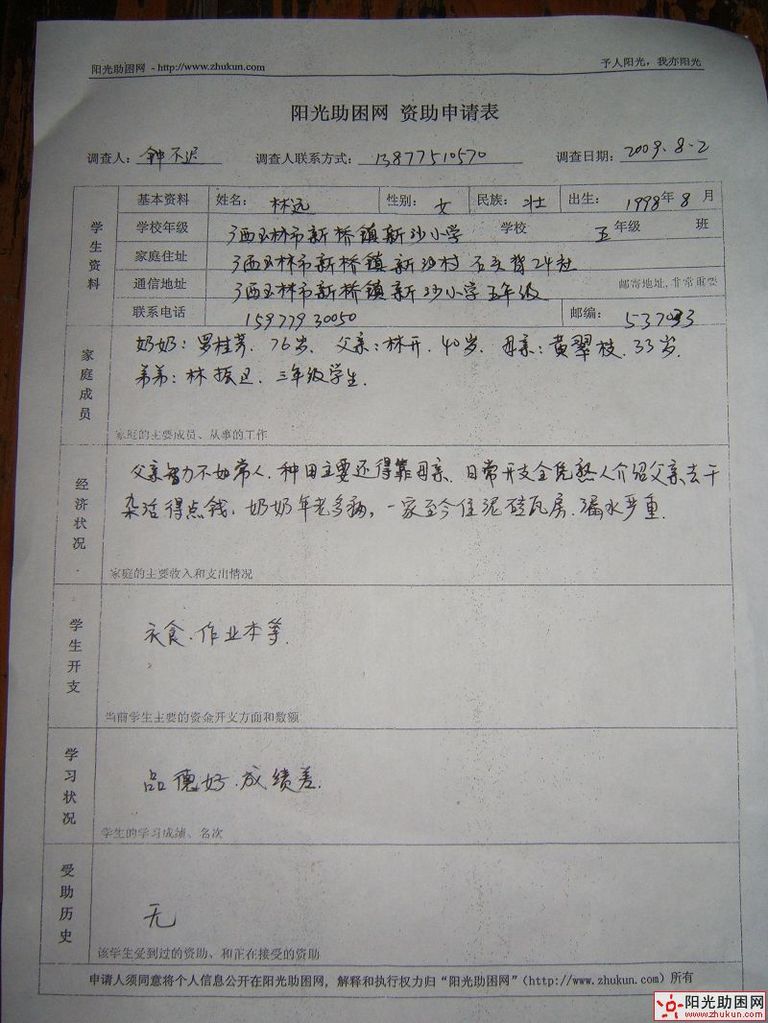 阳光助困网 - http://www.zhukun.com 予人阳光，我亦阳光
阳光助困网 资助申请表
调查人：钟不迟 调查人联系方式：13877510570 调查日期：2009.8.2
学生资料
基本资料 姓名：林远 性别：女 民族：壮 出生：1998年8月
学校年级 广西玉林市新桥镇新沙小学 学校 五年级 班
家庭住址 广西玉林市新桥镇新沙村 石头背24社
通信地址 广西玉林市新桥镇新沙小学五年级 邮寄地址，非常重要
联系电话 15977930050 邮编：537033
家庭成员
奶奶：罗桂芳．76岁．父亲：林开．40岁．母亲：黄翠枝．33岁．
弟弟：林振．三年级学生．
家庭的主要成员、从事的工作
经济状况
父亲智力不如常人．种田主要还得靠母亲．日常开支全凭熟人介绍父亲去干
杂活得点钱．奶奶年老多病，一家至今住泥砖瓦房．漏水严重．
家庭的主要收入和支出情况
学生开支
衣食．作业本等．
当前学生主要的资金开支方面和数额
学习状况
品德好．成绩差．
学生的学习成绩、名次
受助历史
无
该学生受到过的资助、和正在接受的资助
申请人须同意将个人信息公开在阳光助困网，解释和执行权力归“阳光助困网”(http://www.zhukun.com)所有
阳光助困网
www.zhukun.com